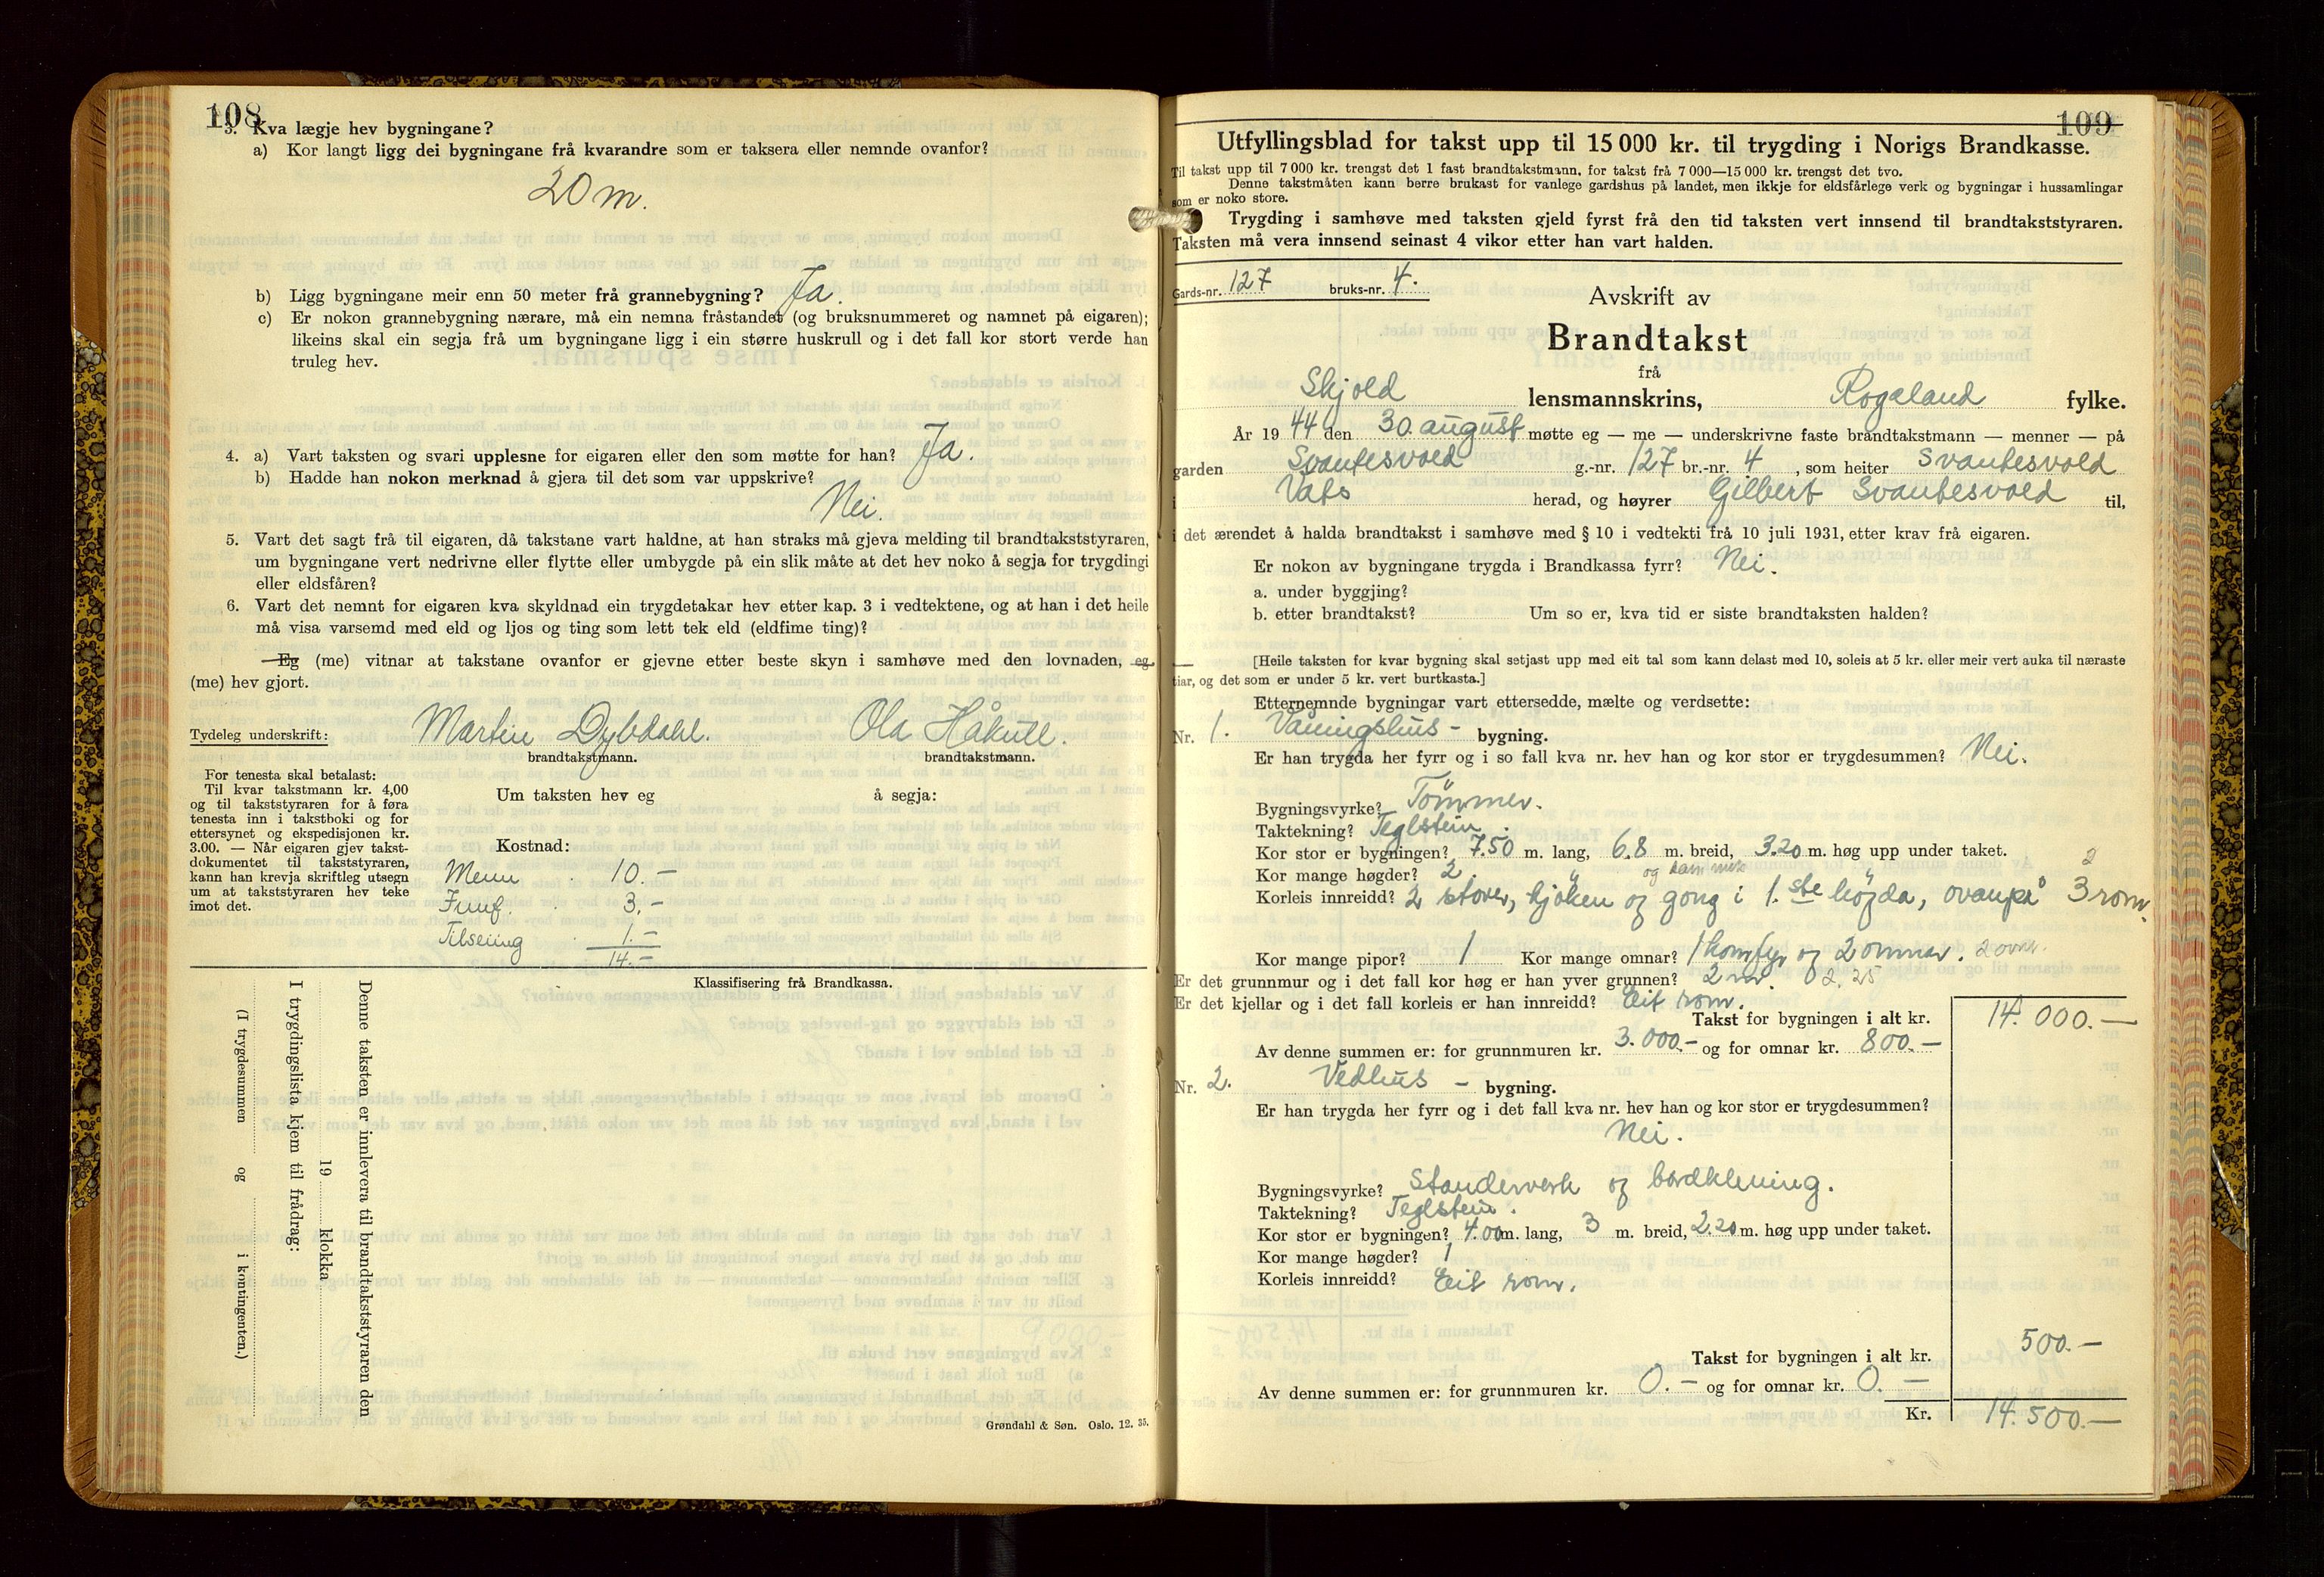 108
3. Kva lægje hev bygningane?
a) Kor langt ligg dei bygningane frå kvarandre som er taksera eller nemnde ovanfor?
20 m.
b) Ligg bygningane meir enn 50 meter frå grannebygning? Ja.
c) Er nokon grannebygning nærare, må ein nemna fråstandet (og bruksnummeret og namnet på eigaren);
likeins skal ein segja frå um bygningane ligg i ein større huskrull og i det fall kor stort verde han
truleg hev.
4. a) Vart taksten og svari upplesne for eigaren eller den som møtte for han? Ja.
b) Hadde han nokon merknad å gjera til det som var uppskrive?
Nei.
5. Vart det sagt frå til eigaren, då takstane vart haldne, at han straks må gjeva melding til brandtakststyraren,
um bygningane vert nedrivne eller flytte eller umbygde på ein slik måte at det hev noko å segja for trygdingi
eller eldsfåren?
6. Vart det nemnt for eigaren kva skyldnad ein trygdetakar hev etter kap. 3 i vedtektene, og at han i det heile
må visa varsemd med eld og ljos og ting som lett tek eld (eldfime ting)?
Eg (me) vitnar at takstane ovanfor er gjevne etter beste skyn i samhøve med den lovnaden, eg
(me) hev gjort.
Tydeleg underskrift: Martin Dybdahl. Ola Håkull.
brandtakstmann. brandtakstmann.
For tenesta skal betalast:
Til kvar takstmann kr. 4,00
og til takststyraren for å føra
tenesta inn i takstboki og for
ettersynet og ekspedisjonen kr.
3.00. — Når eigaren gjev takst-
dokumentet til takststyraren,
kann han krevja skriftleg utsegn
um at takststyraren hev teke
imot det.
Um taksten hev eg å segja:
Kostnad:
Menn 10.-
3.-
Tilseiing 1.-
14.-
Klassifisering frå Brandkassa.
Denne taksten er innlevera til brandtakststyraren den
19 klokka
I trygdingslista kjem til frådrag:
(I trygdesummen og i kontingenten.)
Grøndahl & Søn. Oslo. 12. 35.
109
Utfyllingsblad for takst upp til 15 000 kr. til trygding i Norigs Brandkasse.
Til takst upp til 7 000 kr. trengst det 1 fast brandtakstmann, for takst frå 7 000—15 000 kr. trengst det tvo.
Denne takstmåten kann berre brukast for vanlege gardshus på landet, men ikkje for eldsfårlege verk og bygningar i hussamlingar
som er noko store.
Trygding i samhøve med taksten gjeld fyrst frå den tid taksten vert innsend til brandtakststyraren.
Taksten må vera innsend seinast 4 vikor etter han vart halden.
Gards-nr. 127 bruks-nr. 4.
Avskrift av
Brandtakst
frå
Skjold lensmannskrins, Rogaland fylke.
År 19 44 den 30. august møtte eg — me — underskrivne faste brandtakstmann — menner — på
garden Svantesvold g.-nr. 127 br.-nr. 4 , som heiter Svantesvold
i Vats herad, og høyrer Gilbert Svantesvold til,
i det ærendet å halda brandtakst i samhøve med § 10 i vedtekti frå 10 juli 1931, etter krav frå eigaren.
Er nokon av bygningane trygda i Brandkassa fyrr? Nei.
a. under byggjing?
b. etter brandtakst? Um so er, kva tid er siste brandtaksten halden?
[Heile taksten for kvar bygning skal setjast upp med eit tal som kann delast med 10, soleis at 5 kr. eller meir vert auka til næraste
tiar, og det som er under 5 kr. vert burtkasta.]
Etternemnde bygningar vart ettersedde, mælte og verdsette:
Nr. 1. Våningshus - bygning.
Er han trygda her fyrr og i so fall kva nr. hev han og kor stor er trygdesummen? Nei.
Bygningsvyrke? Tömmer.
Taktekning? Teglstein.
Kor stor er bygningen? 7.50 m. lang, 6.8 m. breid, 3.20 m. høg upp under taket.
Kor mange høgder? 2
Korleis innreidd? 2 stover, kjöken og gong i 1.ste högda, ovanpå 3 rom.
Kor mange pipor? 1 Kor mange omnar? 1 komfyr og 2 omnar.
Er det grunnmur og i det fall kor høg er han yver grunnen? 2 m. 2.25
Er det kjellar og i det fall korleis er han innreidd? Eit rom.
Takst for bygningen i alt kr. 14.000.—
Av denne summen er: for grunnmuren kr. 3.000.- og for omnar kr. 800.—
Nr. 2. Vedhus - bygning.
Er han trygda her fyrr og i det fall kva nr. hev han og kor stor er trygdesummen?
Nei.
Bygningsvyrke? Standerverk og bordkledning.
Taktekning? Teglstein.
Kor stor er bygningen? 4.00 m. lang, 3 m. breid, 2.20 m. høg upp under taket.
Kor mange høgder? 1
Korleis innreidd? Eit rom.
500.—
Takst for bygningen i alt kr.
Av denne summen er: for grunnmuren kr. 0.- og for omnar kr. 0.—
Kr. 14.500.—